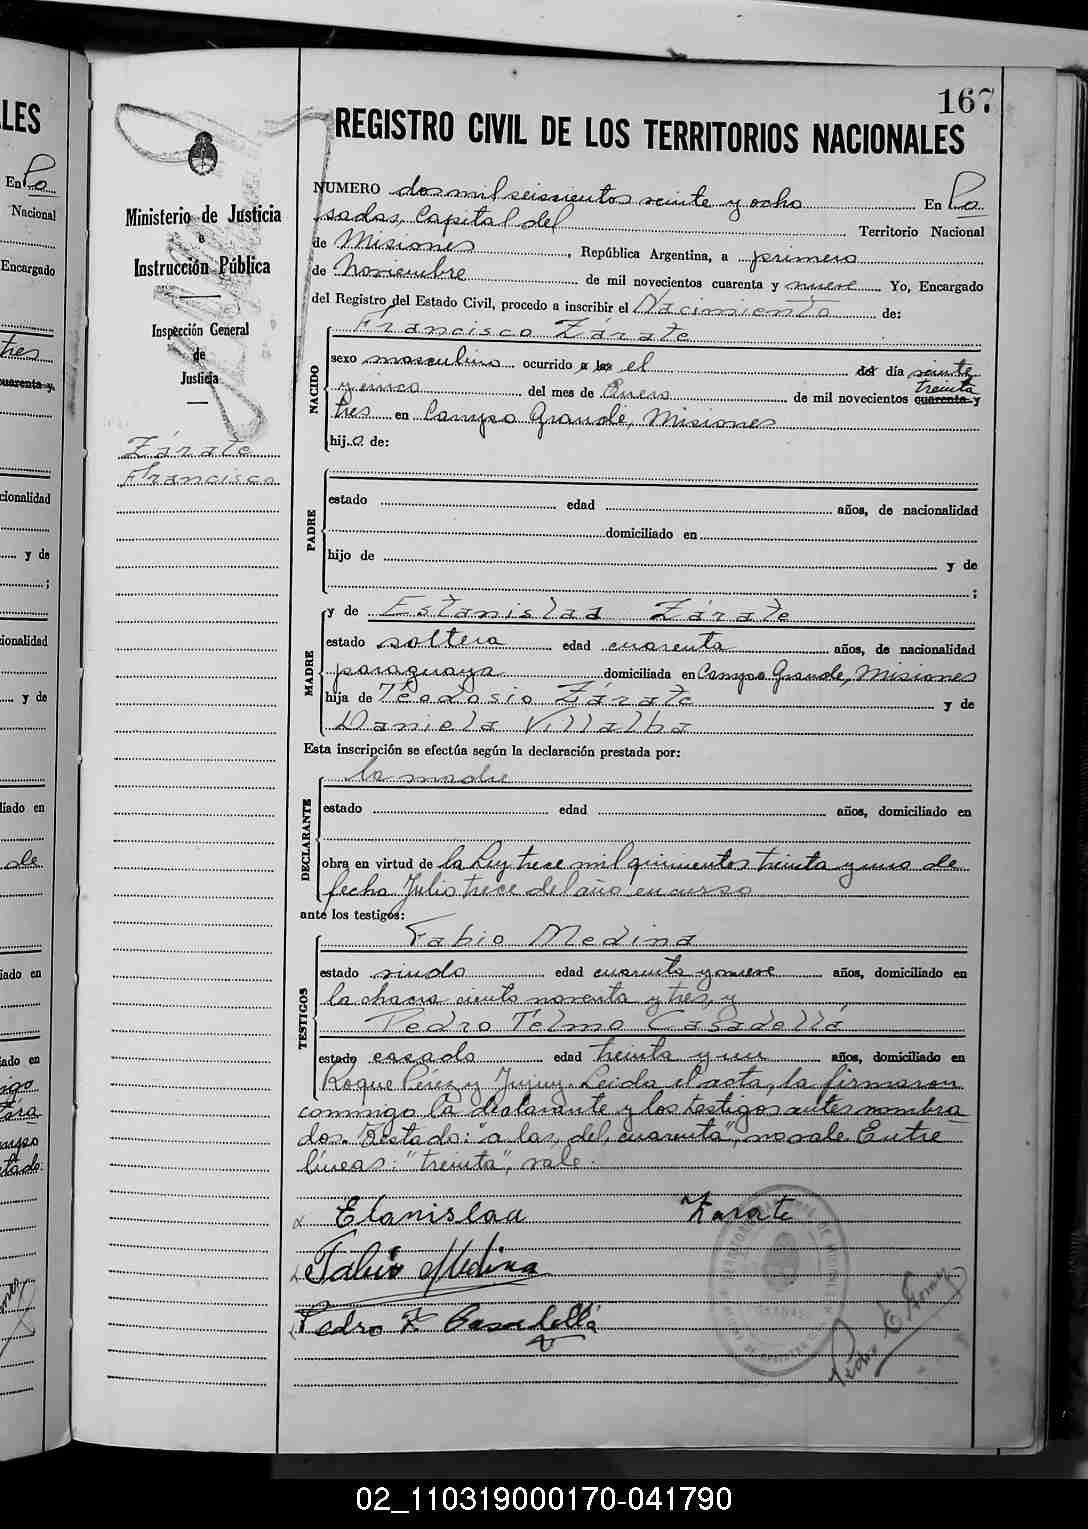 167
REGISTRO CIVIL DE LOS TERRITORIOS NACIONALES
Ministerio de Justicia
e
Instrucción Pública
Inspección General
de
Justicia
Zárate
Francisco
NUMERO dos mil seiscientos veinte y ocho En Po
sadas, Capital del Territorio Nacional
de Misiones, República Argentina, a primero
de Noviembre de mil novecientos cuarenta y nueve Yo, Encargado
del Registro del Estado Civil, procedo a inscribir el Nacimiento de:
Francisco Zárate
NACIDO
sexo masculino ocurrido a las el del día veinte
treinta
y cinco del mes de Enero de mil novecientos cuarenta y
tres en Campo Grande, Misiones
hijo de:
PADRE
estado edad años, de nacionalidad
domiciliado en
hijo de y de
;
MADRE
y de Estanislaa Zárate
estado soltera edad cuarenta años, de nacionalidad
paraguaya domiciliada en Campo Grande, Misiones
hija de Teodosio Zárate y de
Daniela Villalba
Esta inscripción se efectúa según la declaración prestada por:
la madre
DECLARANTE
estado edad años, domiciliado en
obra en virtud de la Ley trece mil quinientos treinta y uno de
fecha Julio trece del año en curso
ante los testigos:
Fabio Medina
TESTIGOS
estado viudo edad cuarenta y nueve años, domiciliado en
la chacra ciento noventa y tres, y
Pedro Telmo Casadellá
estado casado edad treinta y un años, domiciliado en
Roque Pérez y Jujuy. Leida el acta, la firmaron
conmigo la declarante y los testigos antes nombra
dos. Testado: "a las, del, cuarenta", no vale. Entre
líneas: "treinta", vale.
Elanislaa Zarate
Fabio Medina
Pedro T. Casadellá
02_110319000170-041790